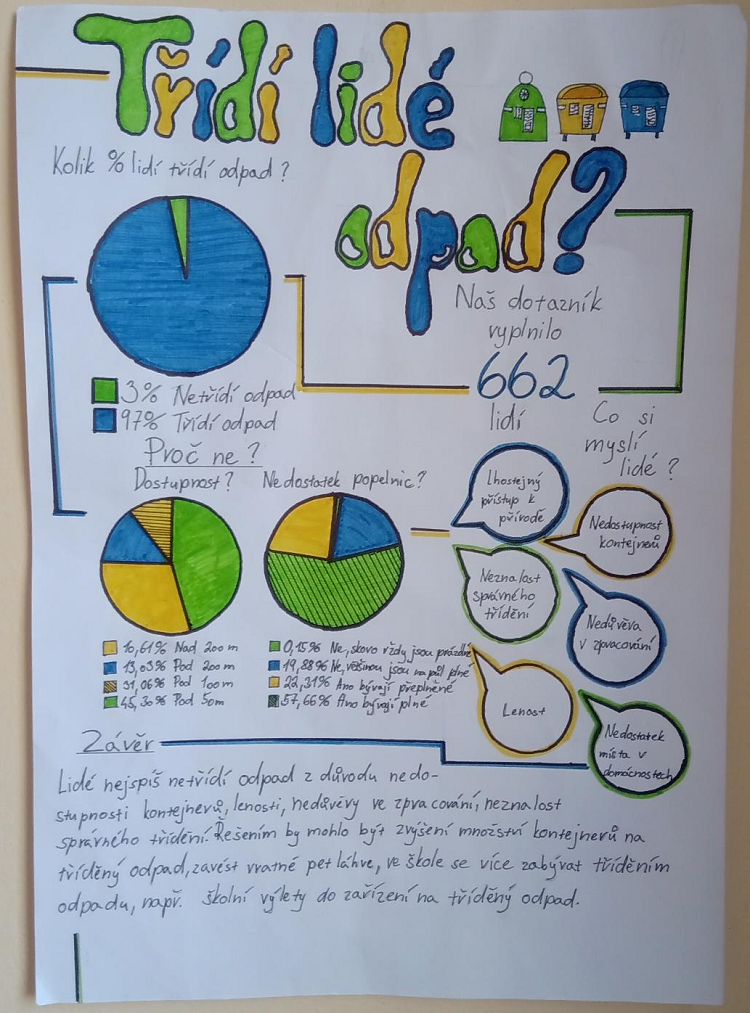 Třídí lidé
odpad?
Kolik % lidí třídí odpad?
3% Netřídí odpad
97% Třídí odpad
Náš dotazník
vyplnilo
662
lidí
Co si
myslí
lidé?
Proč ne?
Dostupnost?
10,61% Nad 200m
13,03% Pod 200m
31,06% Pod 100m
45,30% Pod 50m
Nedostatek popelnic?
0,15% Ne, skoro vždy jsou prázdné
19,88% Ne, většinou jsou na půl plné
22,31% Ano bývají přeplněné
57,66% Ano bývají plné
lhostejný
přístup k
přírodě
Nedostupnost
kontejnerů
Neznalost
správného
třídění
Nedůvěva
v zpracování
Lenost
Nedostatek
místa v
domácnostech
Závěr
Lidé nejspíš netřídí odpad z důvodu nedo-
stupnosti kontejnerů, lenosti, nedůvěvy ve zpracování, neznalost
správného třídění. Řešením by mohlo být zvýšení množství kontejnerů na
tříděný odpad, zavést vratné pet láhve, ve škole se více zabývat tříděním
odpadu, např. školní výlety do zařízení na tříděný odpad.